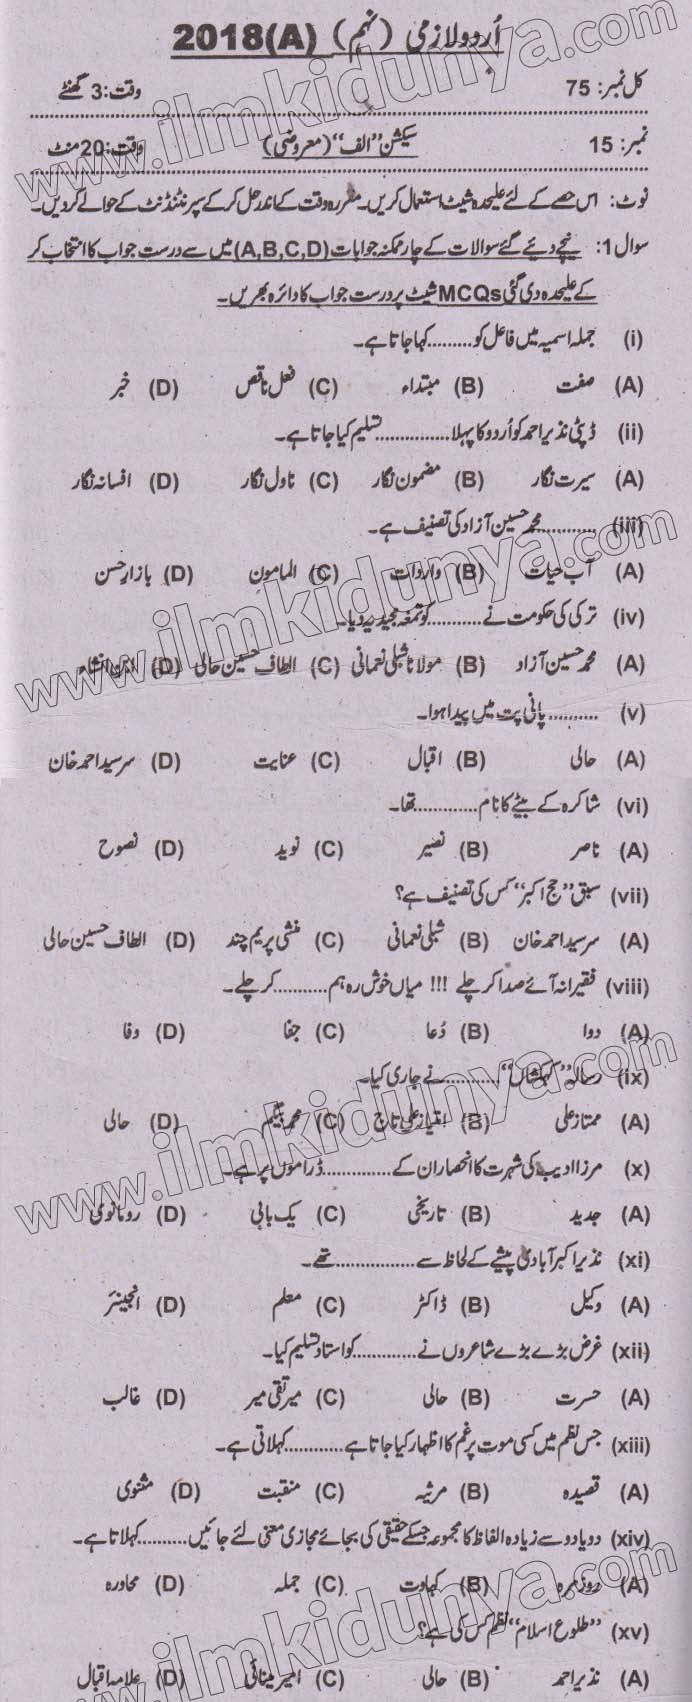 اُردو لازمی (نہم) 2018(A)
کل نمبر: 75 وقت: 3 گھنٹے
نمبر: 15 سیکشن ”الف“ (معروضی) وقت: 20 منٹ
نوٹ: اس حصے کے لئے علیحدہ شیٹ استعمال کریں۔ مقررہ وقت کے اندر حل کر کے سپرنٹنڈنٹ کے حوالے کر دیں۔
سوال 1: نیچے دیئے گئے سوالات کے چار ممکنہ جوابات (A,B,C,D) میں سے درست جواب کا انتخاب کر
کے علیحدہ دی گئی MCQs شیٹ پر درست جواب کا دائرہ بھریں۔
(i) جملہ اسمیہ میں فاعل کو.........کہا جاتا ہے۔
(A) صفت (B) مبتداء (C) فعل ناقص (D) خبر
(ii) ڈپٹی نذیر احمد کو اُردو کا پہلا...............تسلیم کیا جاتا ہے۔
(A) سیرت نگار (B) مضمون نگار (C) ناول نگار (D) افسانہ نگار
(iii) ............محمد حسین آزاد کی تصنیف ہے۔
(A) آب حیات (B) واردات (C) المامون (D) بازارِ حسن
(iv) ترکی کی حکومت نے...........کو تمغہ مجیدیہ دیا۔
(A) محمد حسین آزاد (B) مولانا شبلی نعمانی (C) الطاف حسین حالی (D) ابن انشاء
(v) ..........پانی پت میں پیدا ہوا۔
(A) حالی (B) اقبال (C) عنایت (D) سرسید احمد خان
(vi) شاکرہ کے بیٹے کا نام.............تھا۔
(A) ناصر (B) نصیر (C) نوید (D) نصوح
(vii) سبق ”حج اکبر“ کس کی تصنیف ہے؟
(A) سرسید احمد خان (B) شبلی نعمانی (C) منشی پریم چند (D) الطاف حسین حالی
(viii) فقیرانہ آئے صدا کر چلے !!! میاں خوش رہ ہم...........کر چلے۔
(A) دوا (B) دُعا (C) جفا (D) وفا
(ix) رسالہ ”کہکشاں“............نے جاری کیا۔
(A) ممتاز علی (B) امتیاز علی تاج (C) محمدی بیگم (D) حالی
(x) مرزا ادیب کی شہرت کا انحصار ان کے..............ڈراموں پر ہے۔
(A) جدید (B) تاریخی (C) یک بابی (D) رومانوی
(xi) نذیر اکبر آبادی پیشے کے لحاظ سے................تھے۔
(A) وکیل (B) ڈاکٹر (C) معلم (D) انجینئر
(xii) غرض بڑے بڑے شاعروں نے.............کو استاد تسلیم کیا۔
(A) حسرت (B) حالی (C) میر تقی میر (D) غالب
(xiii) جس نظم میں کسی موت پر غم کا اظہار کیا جاتا ہے............کہلاتی ہے۔
(A) قصیدہ (B) مرثیہ (C) منقبت (D) مثنوی
(xiv) دو یا دو سے زیادہ الفاظ کا مجموعہ جسکے حقیقی کی بجائے مجازی معنی لئے جائیں..........کہلاتا ہے۔
(A) روزمرہ (B) کہاوت (C) جملہ (D) محاورہ
(xv) ”طلوع اسلام“ نظم کس کی ہے؟
(A) نذیر احمد (B) حالی (C) امیر مینائی (D) علامہ اقبال
www.ilmkidunya.com
www.ilmkidunya.com
www.ilmkidunya.com
www.ilmkidunya.com